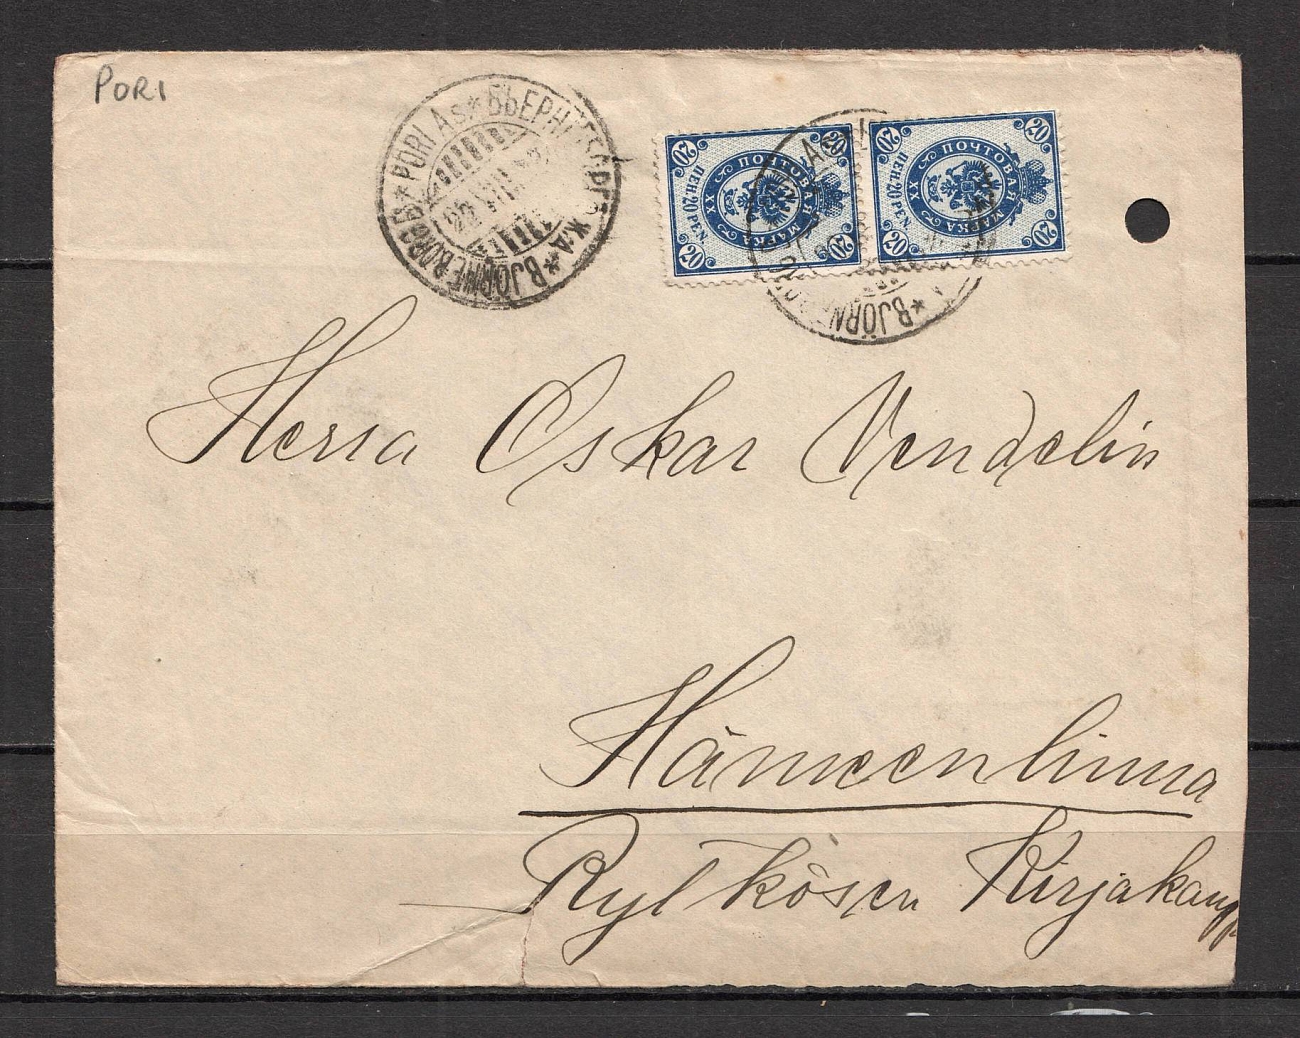 PORI
PORI As * БЬЕРНЕБОРГЪ Х/Д * BJÖRNEBORG B *
20 20
ПОЧТОВАЯ МАРКА XX
ПЕН. 20 PEN.
20 20
20 20
ПОЧТОВАЯ МАРКА XX
ПЕН. 20 PEN.
20 20
* BJÖRNEBORG
Herra Oskar Vendelin
Hämeenlinna
Rytkösen Kirjakaupp